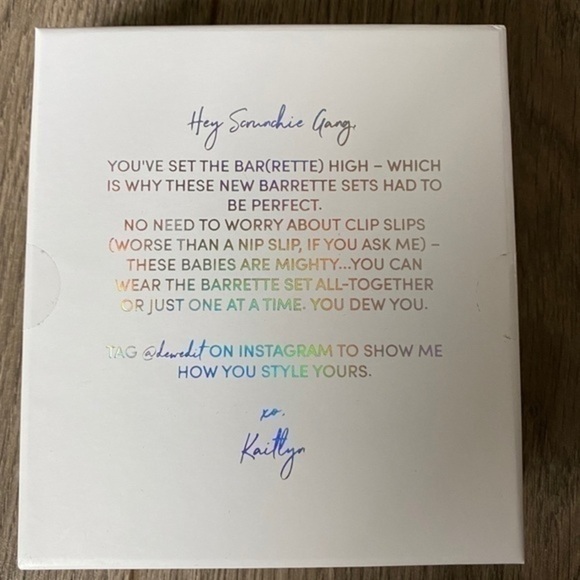 Hey Scrunchie Gang,
YOU'VE SET THE BAR(RETTE) HIGH – WHICH
IS WHY THESE NEW BARRETTE SETS HAD TO
BE PERFECT.
NO NEED TO WORRY ABOUT CLIP SLIPS
(WORSE THAN A NIP SLIP, IF YOU ASK ME) –
THESE BABIES ARE MIGHTY...YOU CAN
WEAR THE BARRETTE SET ALL-TOGETHER
OR JUST ONE AT A TIME. YOU DEW YOU.
TAG @dewedit ON INSTAGRAM TO SHOW ME
HOW YOU STYLE YOURS.
xo,
Kaitlyn